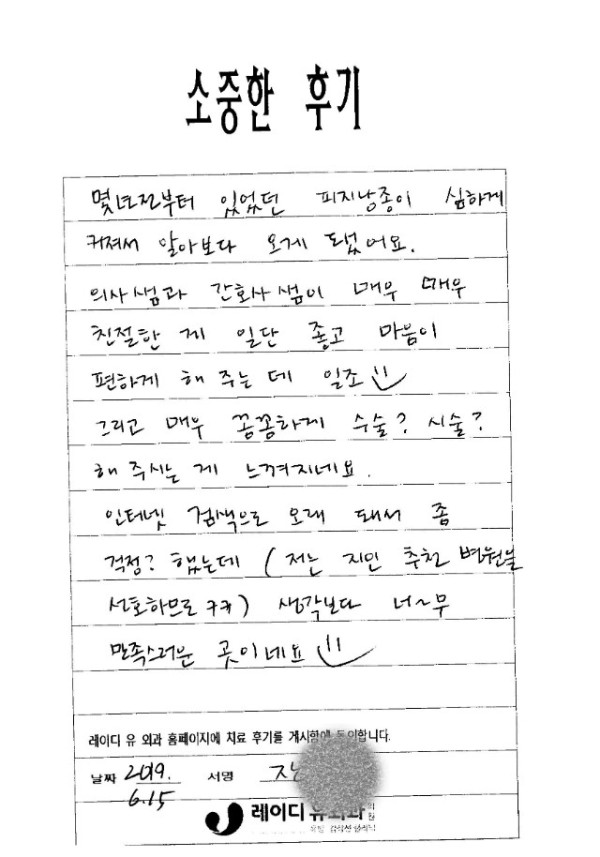 소중한 후기
몇년전부터 있었던 피지낭종이 심하게
커져서 알아보다 오게 되었어요.
의사쌤과 간호사쌤이 매우 매우
친절한 게 일단 좋고 마음이
편하게 해 주는 데 일조
그리고 매우 꼼꼼하게 수술? 시술?
해 주시는 게 느껴지네요.
인터넷 검색으로 오래 돼서 좀
걱정? 했는데 (저는 지인 추천 병원을
선호하므로 ㅋㅋ) 생각보다 너~무
만족스러운 곳이네요
레이디 유 외과 홈페이지에 치료 후기를 게시함에 동의합니다.
날짜 2019. 서명
6.15
레이디 유외과